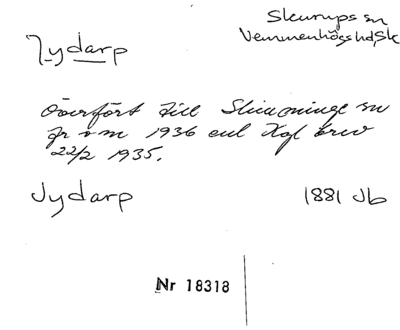 Skurups sn
Jydarp Vemmenhögs hd, Sk
Överfört till Slimminge sn
fr o m 1936 enl Kgl brev
22/2 1935.
Jydarp 1881 Jb
Nr 18318